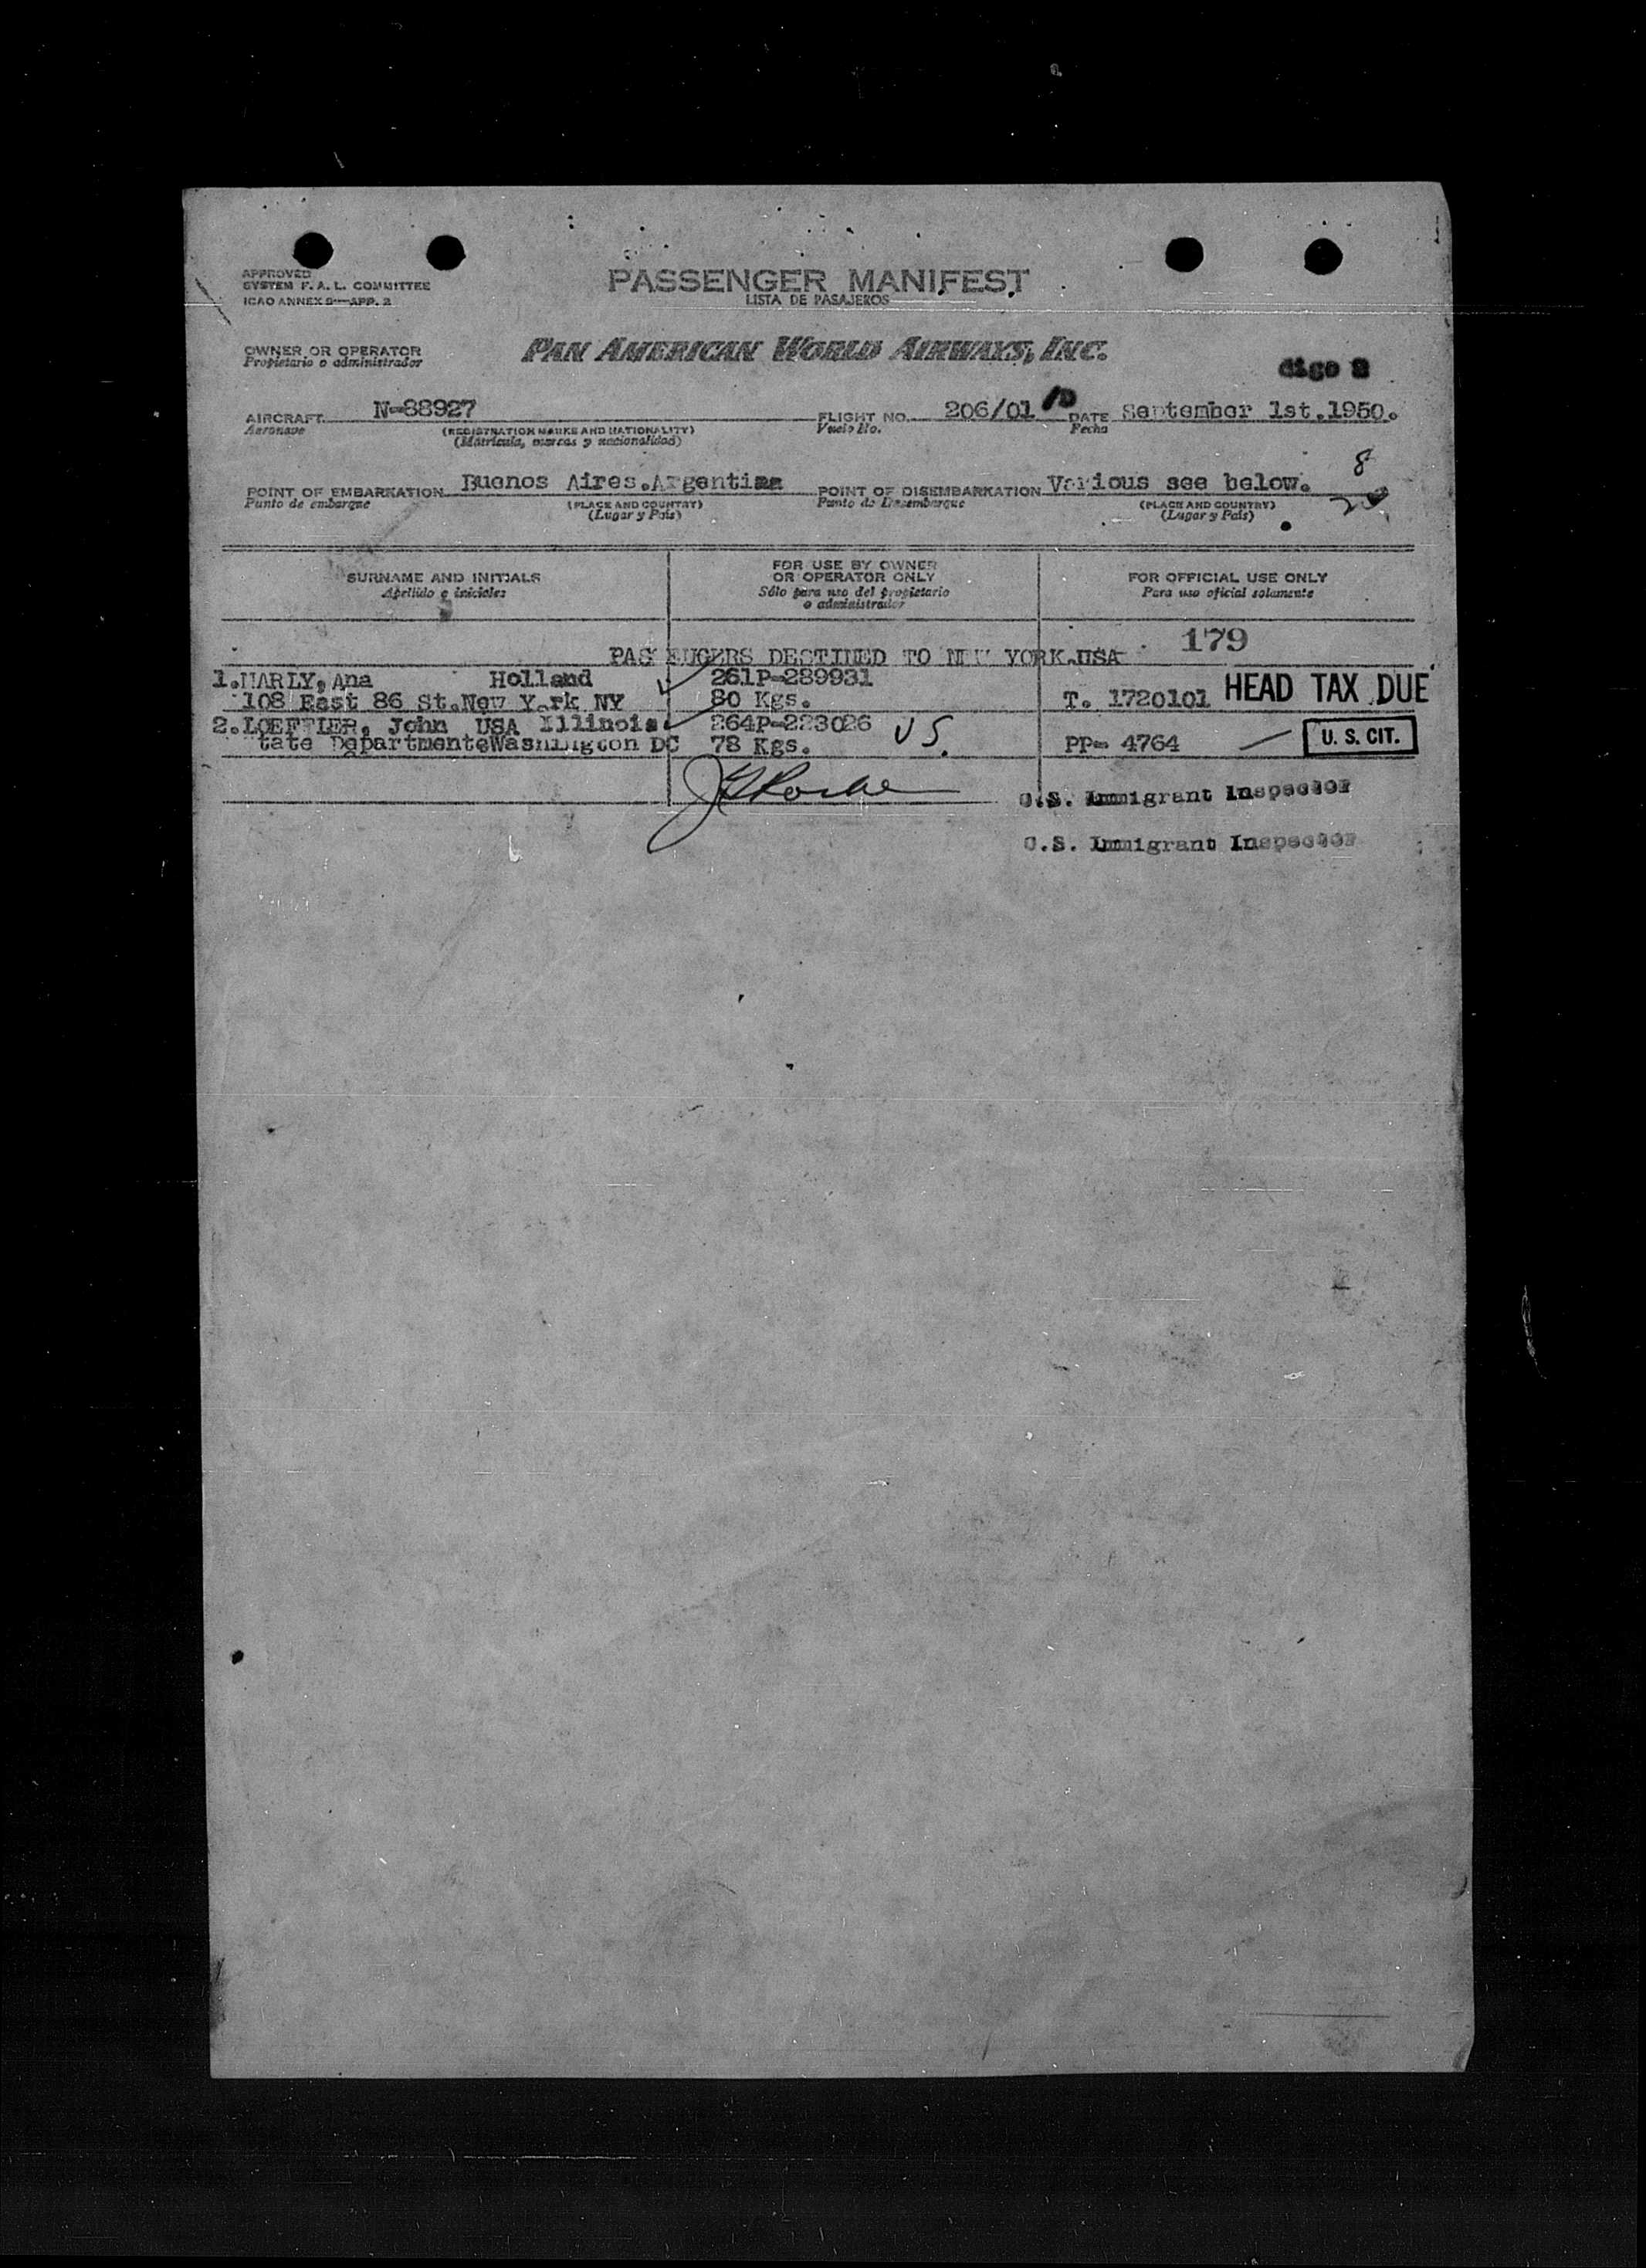 APPROVED
SYSTEM F. A. L. COMMITTEE
ICAO ANNEX 9—APP. 2
PASSENGER MANIFEST
LISTA DE PASAJEROS
OWNER OR OPERATOR
Propietario o administrador
PAN AMERICAN WORLD AIRWAYS, INC.
AIRCRAFT N-88927 FLIGHT NO. 206/01 DATE September 1st.1950.
Aeronave (REGISTRATION MARKS AND NATIONALITY) Vuelo No. Fecha
(Matrícula, marcas y nacionalidad)
8
POINT OF EMBARKATION Buenos Aires.Argentina POINT OF DISEMBARKATION Various see below.
Punto de embarque (PLACE AND COUNTRY) Punto de Desembarque (PLACE AND COUNTRY)
(Lugar y País) (Lugar y País)
SURNAME AND INITIALS FOR USE BY OWNER OR OPERATOR ONLY FOR OFFICIAL USE ONLY
Apellido e iniciales Sólo para uso del propietario o administrador Para uso oficial solamente
179
PAS ENGERS DESTINED TO NEW YORK.USA
1.MARLY, Ana Holland 261P-289931
108 East 86 St.New Y rk NY 80 Kgs. T. 1720101 HEAD TAX DUE
2.LOEFFLER, John USA Illinois 264P-223026 US.
tate Department Washington DC 78 Kgs. PP- 4764 U. S. CIT.
U.S. Immigrant Inspector
U.S. Immigrant Inspector